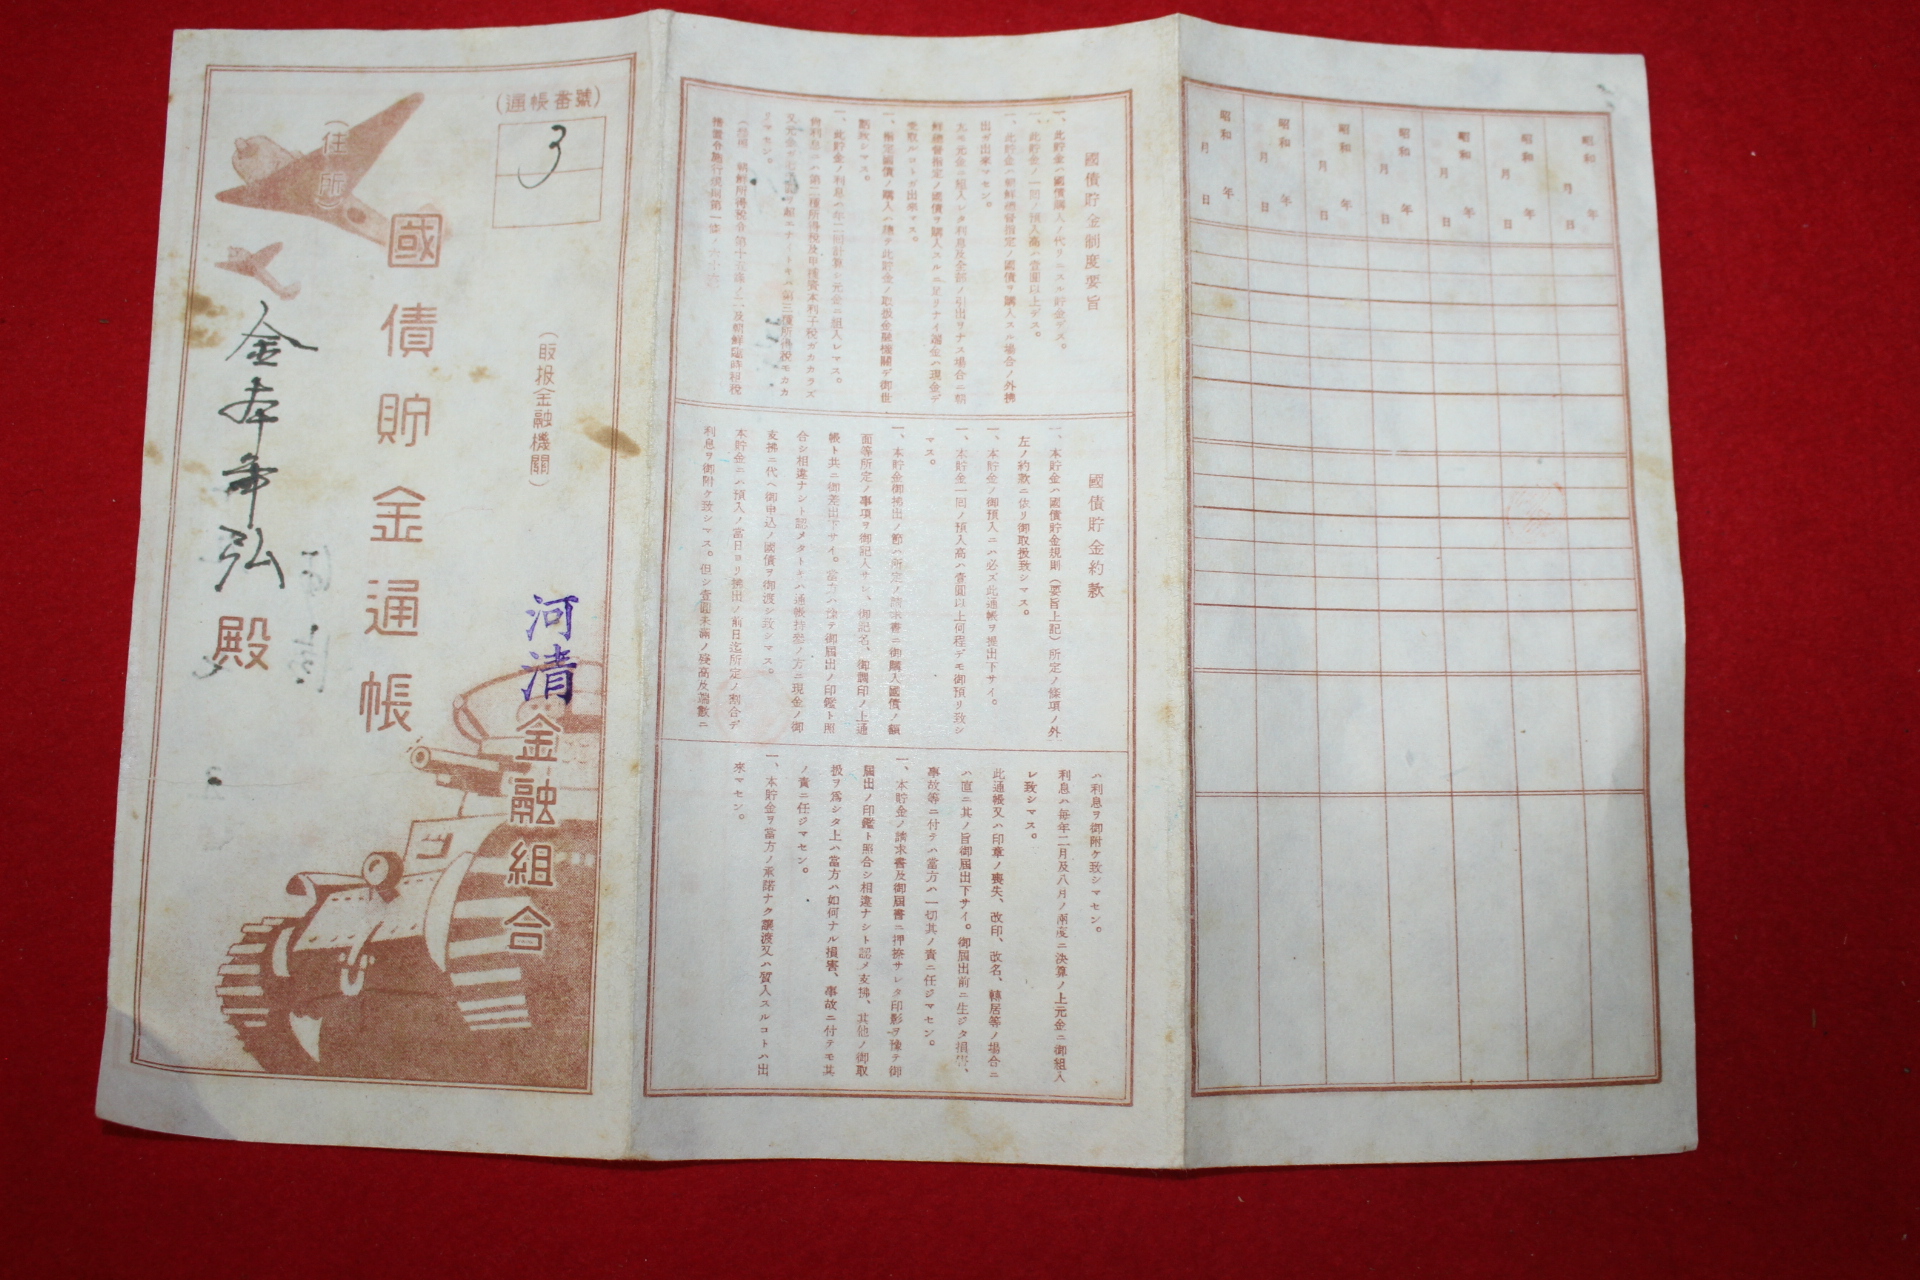 (通帳番號)
3
(取扱金融機關)
河清金融組合
國債貯金通帳
(住所)
金本年弘殿
國債貯金制度要旨
一、此貯金ハ國債購入ノ代リニスル貯金デス。
一、此貯金ノ一回ノ預入高ハ壹圓以上デス。
一、此貯金ハ朝鮮總督指定ノ國債ヲ購入スル場合ノ外拂
出ガ出來マセン。
鮮總督指定ノ國債ヲ購入スルニ足リナイ端金ハ現金デ
受取ルコトガ出來マス。
一、指定國債ノ購入ハ總テ此貯金ノ取扱金融機關デ御世
話致シマス。
一、此貯金ノ利息ハ年二回計算シ元金ニ組入レマス。
リマセン。
國債貯金約款
一、本貯金ハ國債貯金規則(要旨上記)所定ノ條項ノ外
左ノ約款ニ依リ御取扱致シマス。
一、本貯金ノ御預入ニハ必ズ此通帳ヲ提出下サイ。
一、本貯金一回ノ預入高ハ壹圓以上何程デモ御預リ致シ
マス。
一、本貯金御拂出ノ節ハ所定ノ請求書ニ御購入國債ノ額
面等所定ノ事項ヲ御記入サレ、御記名、御調印ノ上通
帳ト共ニ御差出下サイ。當方ハ豫テ御屆出ノ印鑑ト照
合シ相違ナシト認メタトキハ通帳持參ノ方ニ現金ノ御
支拂ニ代ヘ御申込ノ國債ヲ御渡シ致シマス。
本貯金ニハ預入ノ當日ヨリ拂出ノ前日迄所定ノ割合デ
利息ヲ御附ケ致シマス。但シ壹圓未滿ノ殘高及端數ニ
ハ利息ヲ御附ケ致シマセン。
利息ハ毎年二月及八月ノ兩度ニ決算ノ上元金ニ御組入
レ致シマス。
此通帳又ハ印章ノ喪失、改印、改名、轉居等ノ場合ニ
ハ直ニ其ノ旨御屆出下サイ。御屆出前ニ生ジタ損害、
事故等ニ付テハ當方ハ一切其ノ責ニ任ジマセン。
一、本貯金ノ請求書及御屆書ニ押捺サレタ印影ヲ豫テ御
屆出ノ印鑑ト照合シ相違ナシト認メ支拂、其他ノ御取
扱ヲ爲シタ上ハ當方ハ如何ナル損害、事故ニ付テモ其
ノ責ニ任ジマセン。
一、本貯金ヲ當方ノ承諾ナク讓渡又ハ質入スルコトハ出
來マセン。
昭和 年 月 日
昭和 年 月 日
昭和 年 月 日
昭和 年 月 日
昭和 年 月 日
昭和 年 月 日
昭和 年 月 日